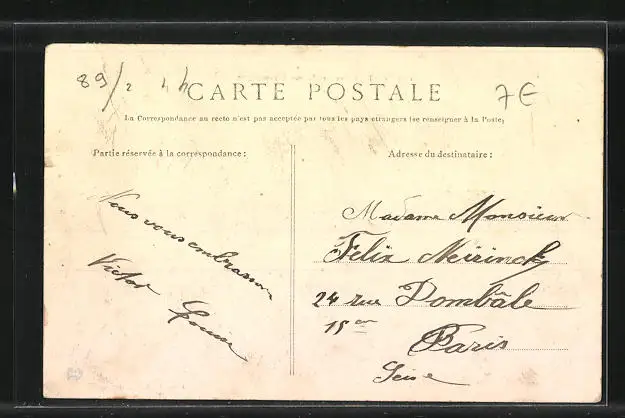 89/2 4h
7€
CARTE POSTALE
La Correspondance au recto n'est pas acceptée par tous les pays étrangers (se renseigner à la Poste)
Partie réservée à la correspondance :
Adresse du destinataire :
Nous vous embrassons
Victor Louise
Madame Monsieur
Félix Neirinck
24 rue Dombâle
15e
Paris
Seine